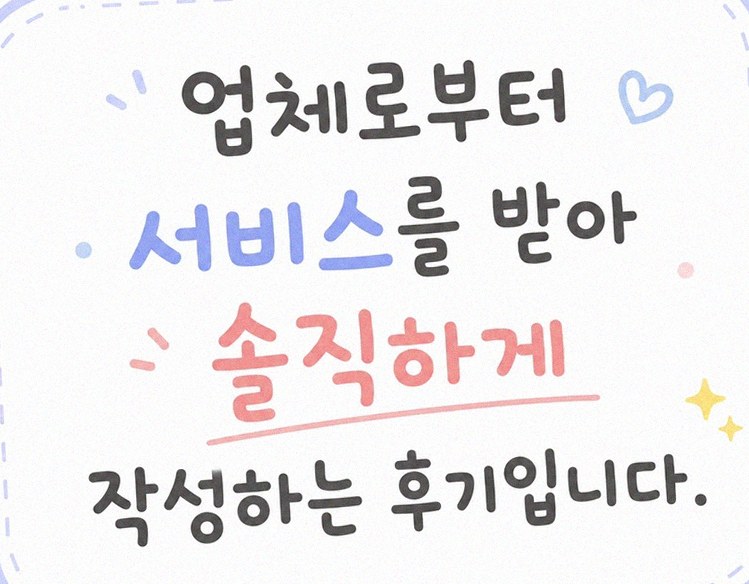 업체로부터
서비스를 받아
솔직하게
작성하는 후기입니다.